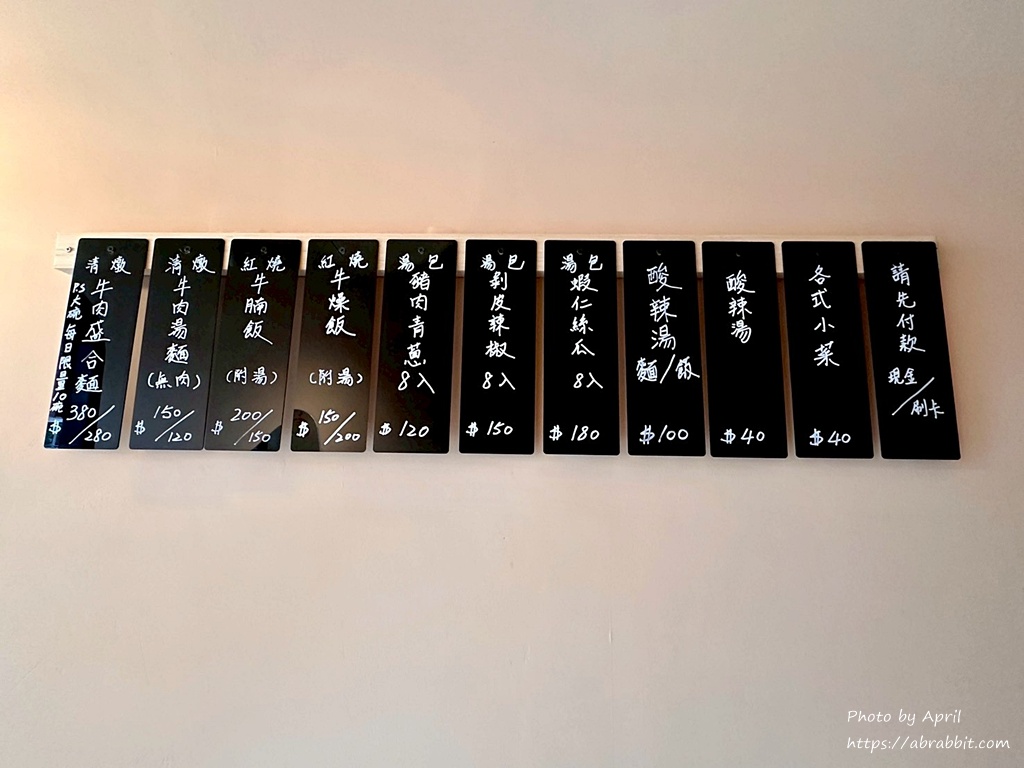 清燉
牛肉盛合麵
P.S大碗每日限量10碗
$380/280
清燉
牛肉湯麵
(無肉)
150/120
紅燒
牛腩飯
(附湯)
200/150
紅燒
牛燥飯
(附湯)
$150/200
湯包
豬肉青蔥
8入
$120
湯包
剝皮辣椒
8入
$150
湯包
蝦仁絲瓜
8入
$180
酸辣湯
麵/飯
$100
酸辣湯
$40
各式小菜
$40
請先付款
現金/刷卡
Photo by April
https://abrabbit.com